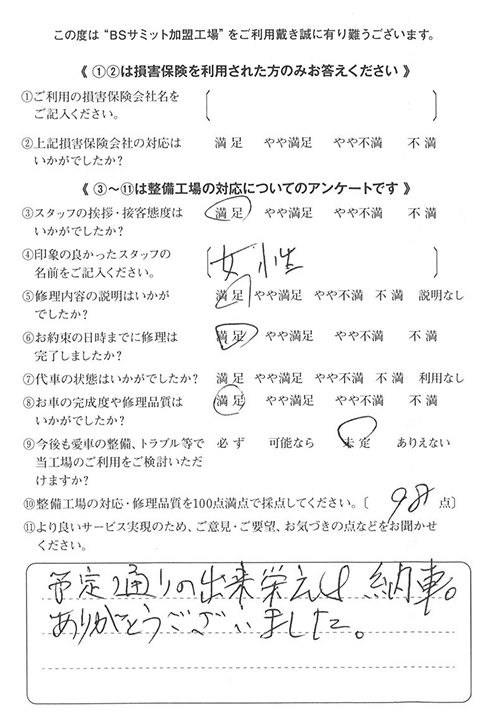 この度は“BSサミット加盟工場”をご利用戴き誠に有り難うございます。
《 ①②は損害保険を利用された方のみお答えください 》
①ご利用の損害保険会社名を
ご記入ください。
②上記損害保険会社の対応は 満 足 やや満足 やや不満 不 満
いかがでしたか?
《 ③〜⑪は整備工場の対応についてのアンケートです 》
③スタッフの挨拶・接客態度は 満 足 やや満足 やや不満 不 満
いかがでしたか?
④印象の良かったスタッフの
名前をご記入ください。 女性
⑤修理内容の説明はいかが 満 足 やや満足 やや不満 不 満 説明なし
でしたか?
⑥お約束の日時までに修理は 満 足 やや満足 やや不満 不 満
完了しましたか?
⑦代車の状態はいかがでしたか? 満 足 やや満足 やや不満 不 満 利用なし
⑧お車の完成度や修理品質は 満 足 やや満足 やや不満 不 満
いかがでしたか?
⑨今後も愛車の整備、トラブル等で 必 ず 可能なら 未 定 ありえない
当工場のご利用をご検討いただ
けますか?
⑩整備工場の対応・修理品質を100点満点で採点してください。〔 98 点〕
⑪より良いサービス実現のため、ご意見・ご要望、お気づきの点などをお聞かせ
ください。
予定通りの出来栄え 納車。
ありがとうございました。